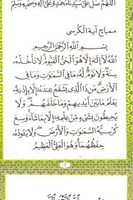 اللهم صل على سيدنا محمد وعلى آله وصحبه وسلم
آية الكرسي
بسم الله الرحمن الرحيم
الله لا إله إلا هو الحي القيوم لا تأخذه
سنة ولا نوم له ما في السموات وما في
الأرض من ذا الذي يشفع عنده إلا بإذنه
يعلم ما بين أيديهم وما خلفهم ولا
يحيطون بشيء من علمه إلا بما شاء وسع
كرسيه السموات والأرض ولا يئوده
حفظهما وهو العلي العظيم